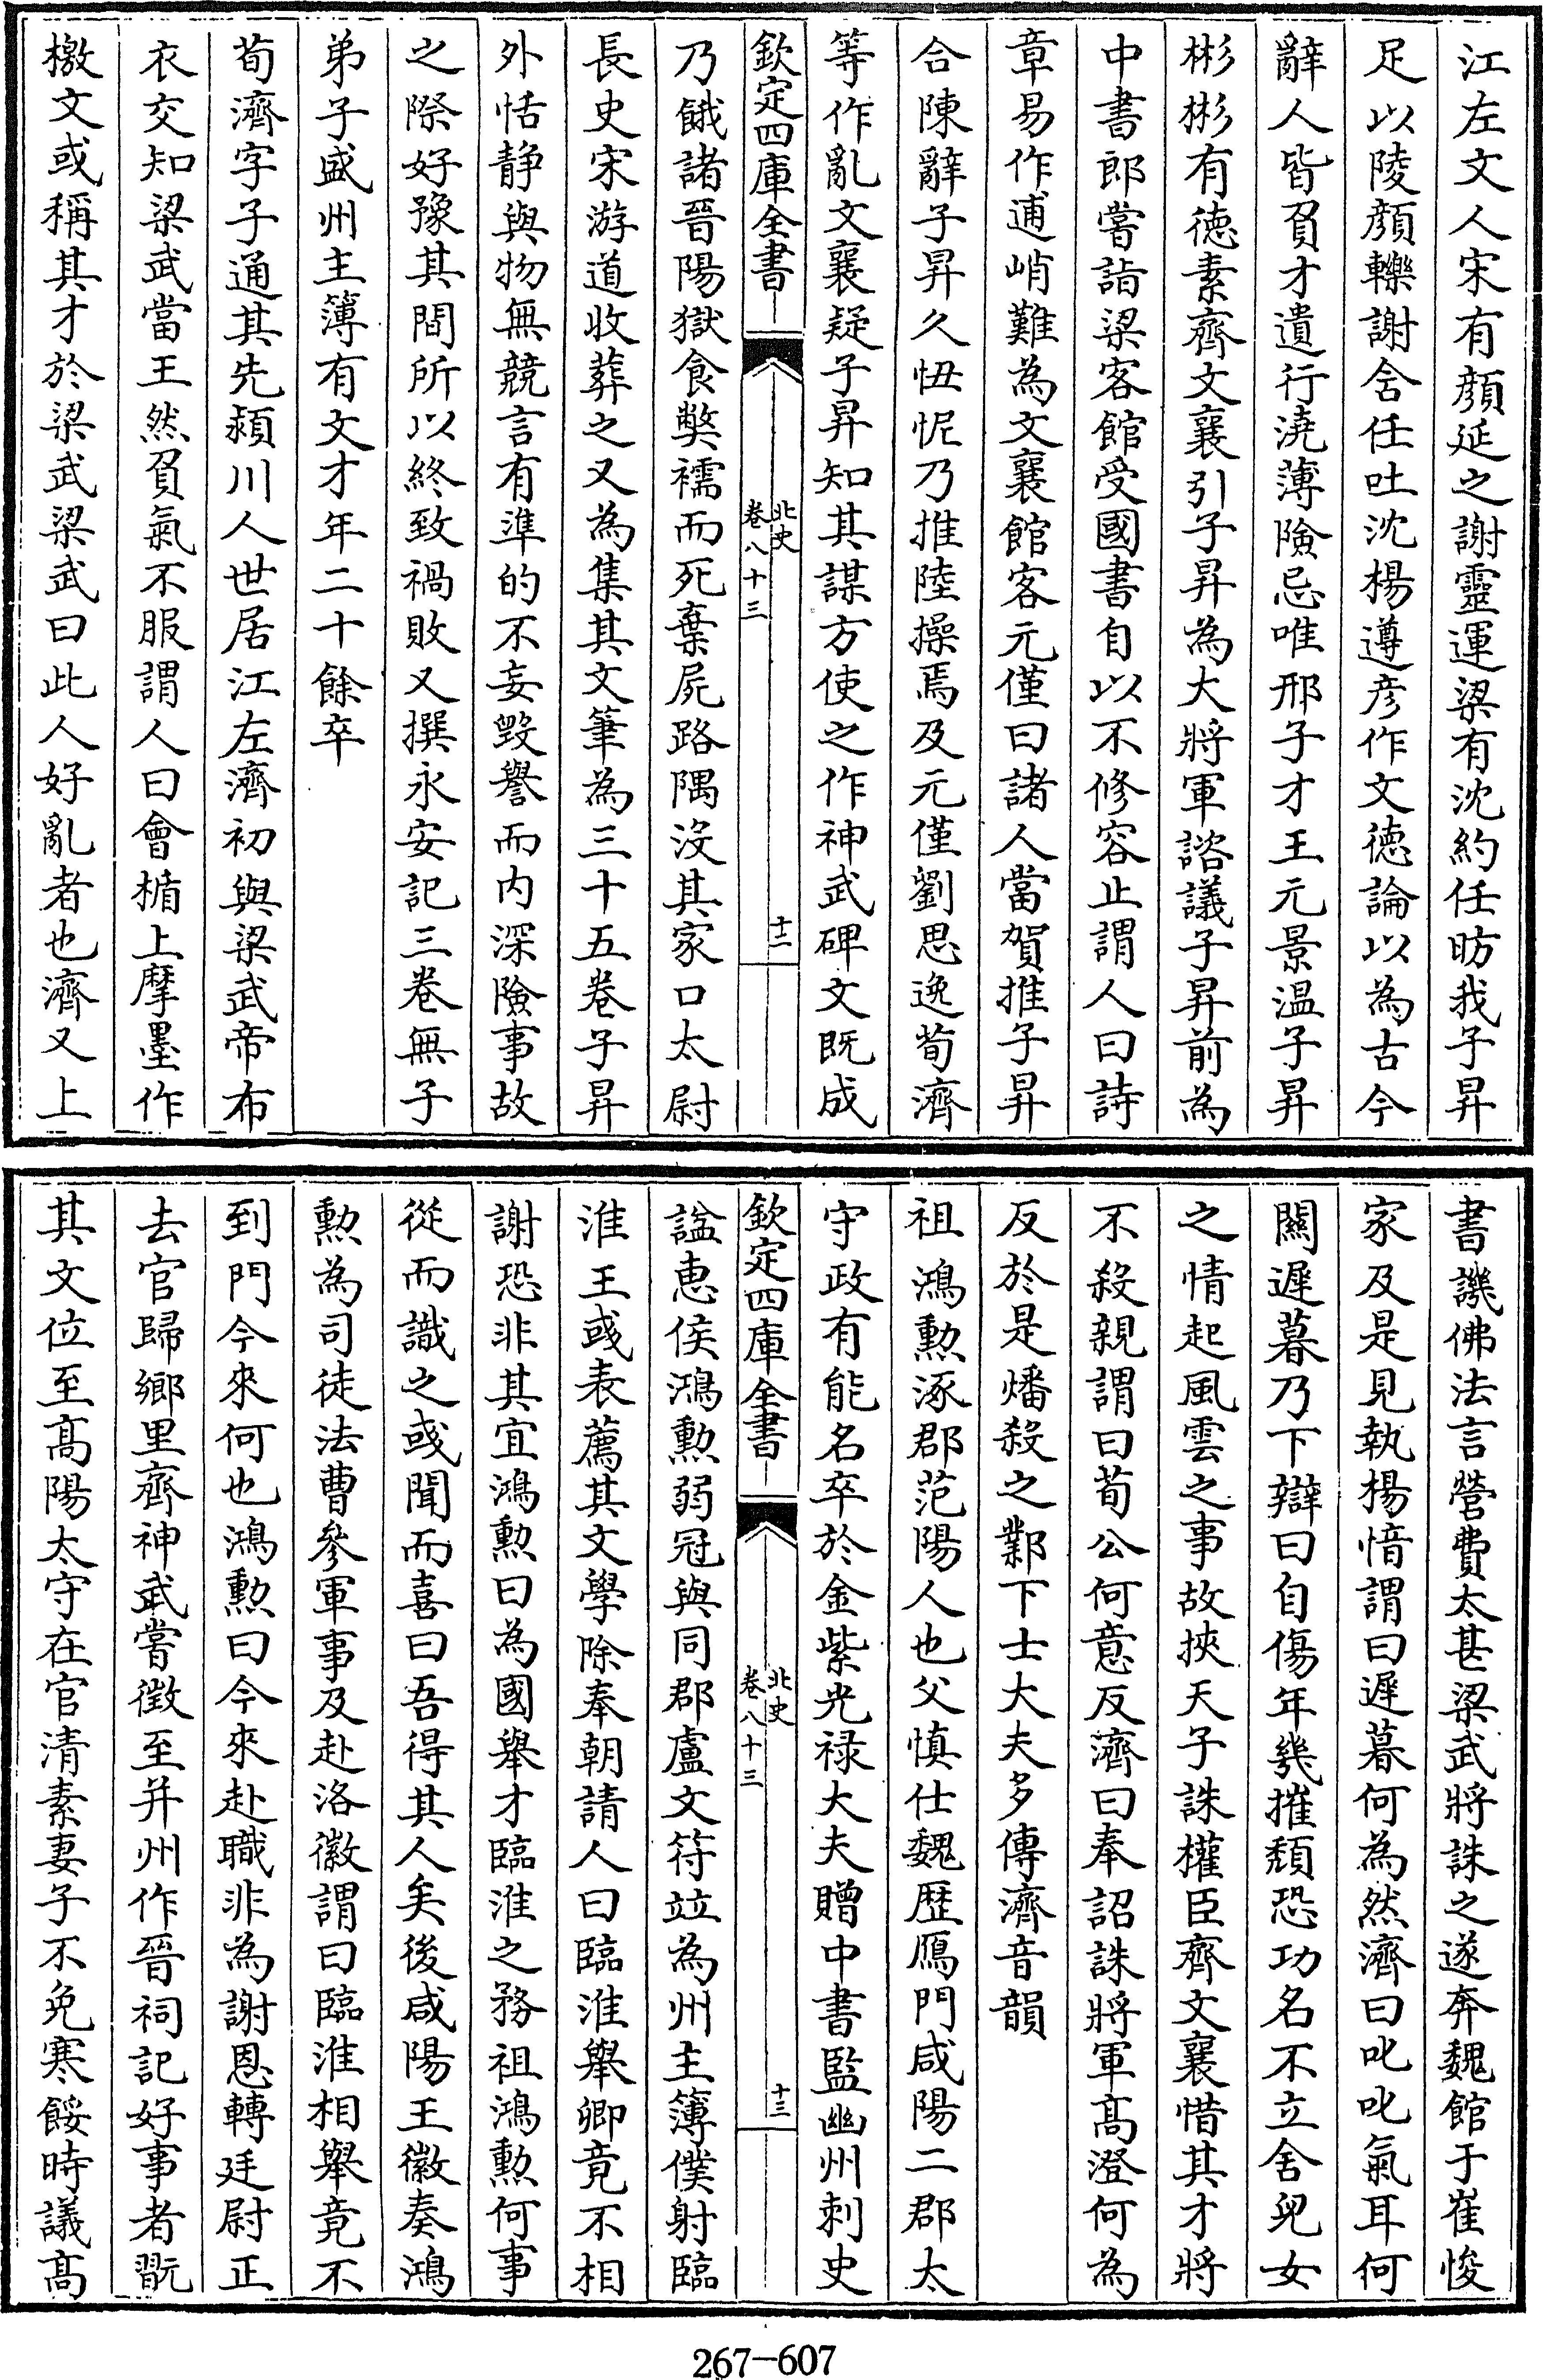 江左文人宋有顔延之謝靈運梁有沈約任昉我子昇
足以陵顔轢謝含任吐沈楊遵彦作文徳論以為古今
辭人皆負才遺行澆薄險忌唯邢子才王元景温子昇
彬彬有徳素齊文襄引子昇為大將軍諮議子昇前為
中書郎嘗詣梁客館受國書自以不修容止謂人曰詩
章易作逋峭難為文襄館客元僅曰諸人當賀推子昇
合陳辭子昇久忸怩乃推陸操焉及元僅劉思逸荀濟
等作亂文襄疑子昇知其謀方使之作神武碑文既成
欽定四庫全書
北史
卷八十三
十二
乃餓諸晉陽獄食獘襦而死棄屍路隅没其家口太尉
長史宋游道收葬之又為集其文筆為三十五卷子昇
外恬静與物無競言有準的不妄毁譽而内深險事故
之際好豫其間所以終致禍敗又撰永安記三卷無子
弟子盛州主簿有文才年二十餘卒
荀濟字子通其先潁川人世居江左濟初與梁武帝布
衣交知梁武當王然負氣不服謂人曰會楯上摩墨作
檄文或稱其才於梁武梁武曰此人好亂者也濟又上
書譏佛法言營費太甚梁武將誅之遂奔魏館于崔㥄
家及是見執楊愔謂曰遲暮何為然濟曰叱叱氣耳何
關遲暮乃下辯曰自傷年幾摧頽恐功名不立舍兒女
之情起風雲之事故挾天子誅權臣齊文襄惜其才將
不殺親謂曰荀公何意反濟曰奉詔誅將軍髙澄何為
反於是燔殺之鄴下士大夫多傳濟音韻
祖鴻勲涿郡范陽人也父慎仕魏歴鴈門咸陽二郡太
守政有能名卒於金紫光禄大夫贈中書監幽州刺史
欽定四庫全書
北史
卷八十三
十三
諡恵侯鴻勲弱冠與同郡盧文符竝為州主簿僕射臨
淮王彧表薦其文學除奉朝請人曰臨淮舉卿竟不相
謝恐非其宜鴻勲曰為國舉才臨淮之務祖鴻勲何事
從而識之彧聞而喜曰吾得其人矣後咸陽王徽奏鴻
勲為司徒法曹參軍事及赴洛徽謂曰臨淮相舉竟不
到門今來何也鴻勲曰今來赴職非為謝恩轉廷尉正
去官歸鄉里齊神武嘗徴至并州作晉祠記好事者翫
其文位至髙陽太守在官清素妻子不免寒餒時議髙
267-607